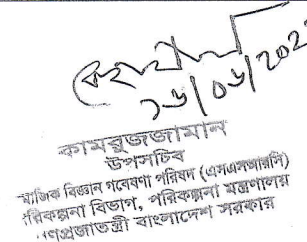 ১৬/০৬/202
কামরুজজামান
উপসচিব
মাজিক বিজ্ঞান গবেষণা পরিষদ (এসএসআরসি)
রিকল্পনা বিভাগ, পরিকল্পনা মন্ত্রণালয়
গণপ্রজাতন্ত্রী বাংলাদেশ সরকার